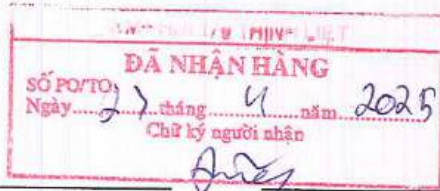 ĐÃ NHẬN HÀNG
SỐ PO/TO:
Ngày..... tháng..... 4 .....năm..2025
Chữ ký người nhận